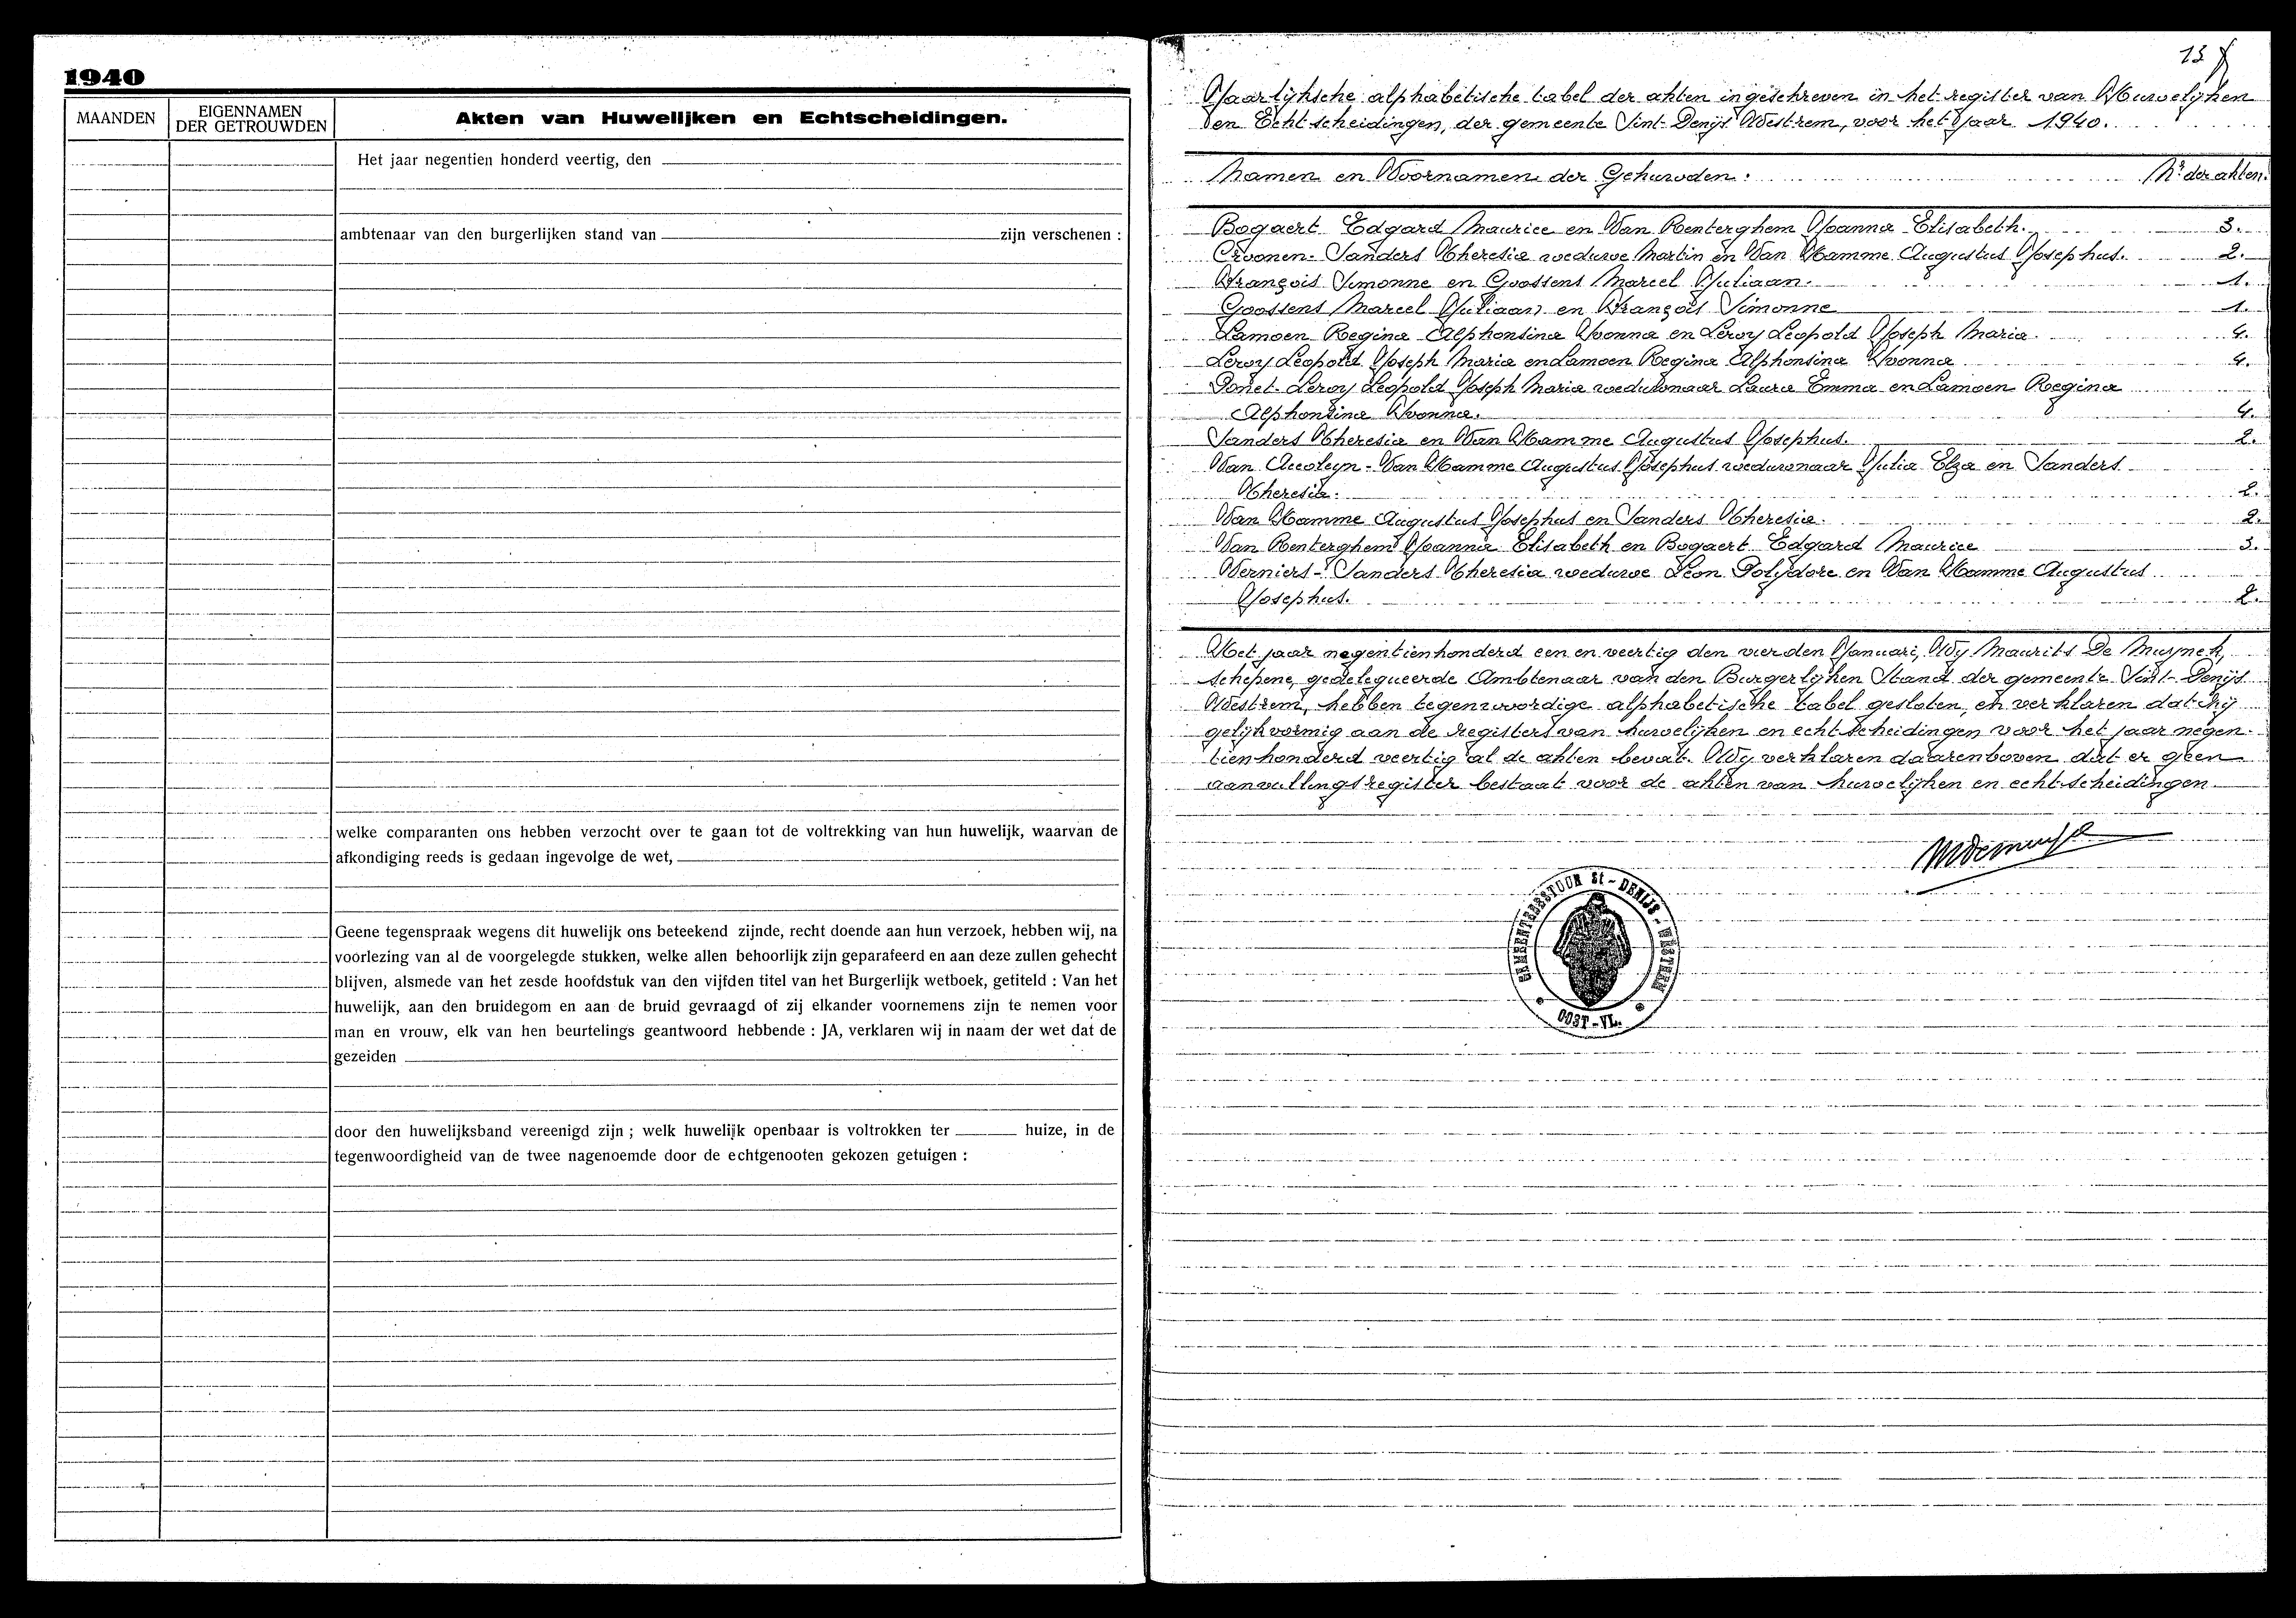 1940
MAANDEN
EIGENNAMEN
DER GETROUWDEN
Akten van Huwelijken en Echtscheidingen.
Het jaar negentien honderd veertig, den
ambtenaar van den burgerlijken stand van zijn verschenen :
welke comparanten ons hebben verzocht over te gaan tot de voltrekking van hun huwelijk, waarvan de
afkondiging reeds is gedaan ingevolge de wet,
Geene tegenspraak wegens dit huwelijk ons beteekend zijnde, recht doende aan hun verzoek, hebben wij, na
voorlezing van al de voorgelegde stukken, welke allen behoorlijk zijn geparafeerd en aan deze zullen gehecht
blijven, alsmede van het zesde hoofdstuk van den vijfden titel van het Burgerlijk wetboek, getiteld : Van het
huwelijk, aan den bruidegom en aan de bruid gevraagd of zij elkander voornemens zijn te nemen voor
man en vrouw, elk van hen beurtelings geantwoord hebbende : JA, verklaren wij in naam der wet dat de
gezeiden
door den huwelijksband vereenigd zijn ; welk huwelijk openbaar is voltrokken ter huize, in de
tegenwoordigheid van de twee nagenoemde door de echtgenooten gekozen getuigen :
13
Jaarlijksche alphabetische tabel der akten ingeschreven in het register van Huwelijken
en Echtscheidingen, der gemeente Sint-Denijs Westrem, voor het Jaar 1940.
Namen en Voornamen der Gehuwden : Nr der akten.
Bogaert Edgard Maurice en Van Renterghem Joanna Elisabeth. 3.
Croonen-Sanders Theresia weduwe Martin en Van Hamme Augustus Josephus. 2.
François Simonne en Goossens Marcel Juliaan. 1.
Goossens Marcel Juliaan en François Simonne 1.
Lamoen Regina Alphonsina Yvonna en Leroy Leopold Joseph Maria. 4.
Leroy Leopold Joseph Maria en Lamoen Regina Alphonsina Yvonna 4.
Leroy Leopold Joseph Maria weduwnaar Laura Emma en Lamoen Regina
Alphonsina Yvonna. 4.
Sanders Theresia en Van Hamme Augustus Josephus. 2.
Van Hamme Augustus Josephus weduwnaar Julia Elza en Sanders
Theresia. 2.
Van Hamme Augustus Josephus en Sanders Theresia. 2.
Van Renterghem Joanna Elisabeth en Bogaert Edgard Maurice 3.
Verniers-Sanders Theresia weduwe Leon Polydore en Van Hamme Augustus
Josephus. 2.
Het jaar negentienhonderd een en veertig den vierden Januari, Wy Maurits De Muynck,
schepene, gedelegueerde Ambtenaar van den Burgerlijken Stand der gemeente Sint-Denijs
Westrem, hebben tegenwoordige alphabetische tabel gesloten, en verklaren dat hij
gelijkvormig aan de registers van huwelijken en echtscheidingen voor het jaar negen-
tienhonderd veertig al de akten bevat. Wy verklaren daarenboven dat er geen
aanvullingsregister bestaat voor de akten van huwelijken en echtscheidingen.
GEMEENTEBESTUUR St-DENIJS-WESTREM
OOST-VL.